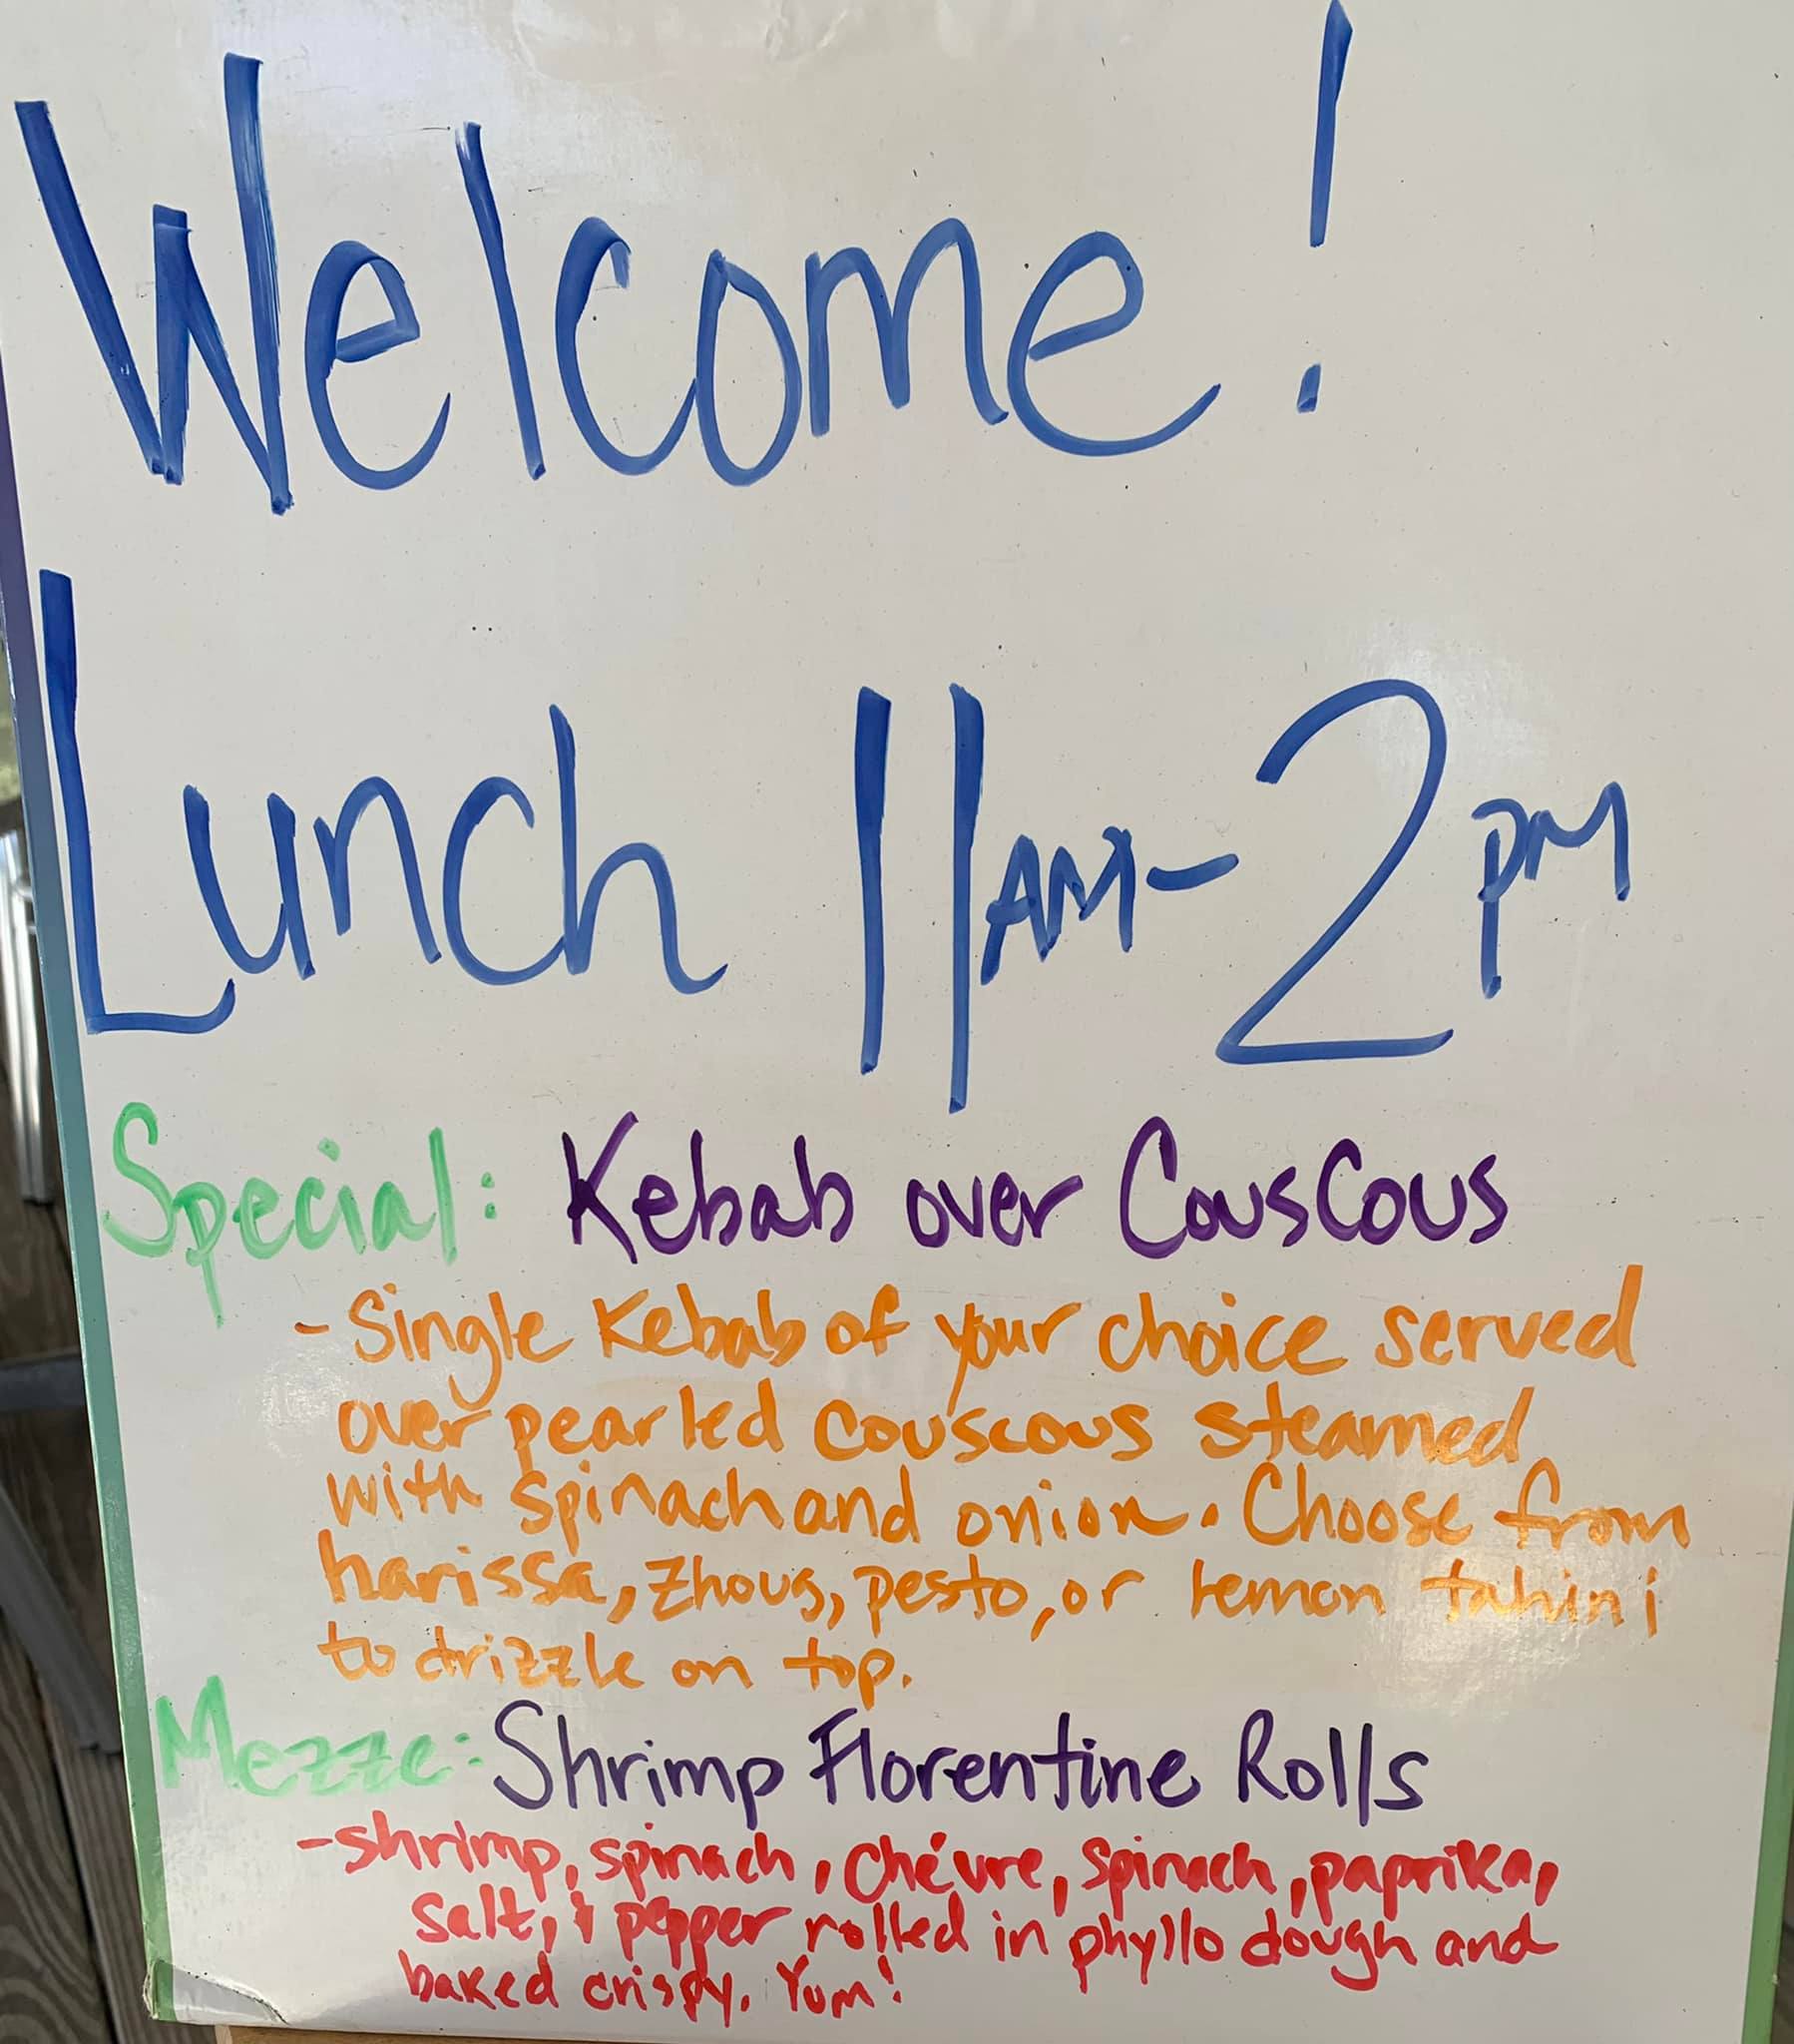 Welcome!
Lunch 11AM-2PM
Special: Kebab over CousCous
- Single Kebab of your choice served
over pearled couscous steamed
with spinach and onion. Choose from
harissa, zhoug, pesto, or lemon tahini
to drizzle on top.
Mezze: Shrimp Florentine Rolls
- shrimp, spinach, Chévre, Spinach, paprika,
Salt, & pepper rolled in phyllo dough and
baked crispy. Yum!